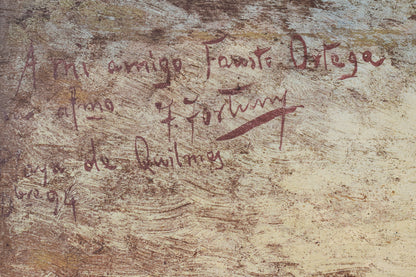 A mi amigo Fausto Ortega
afmo. F. Fortuny
Playa de Quilmes
94